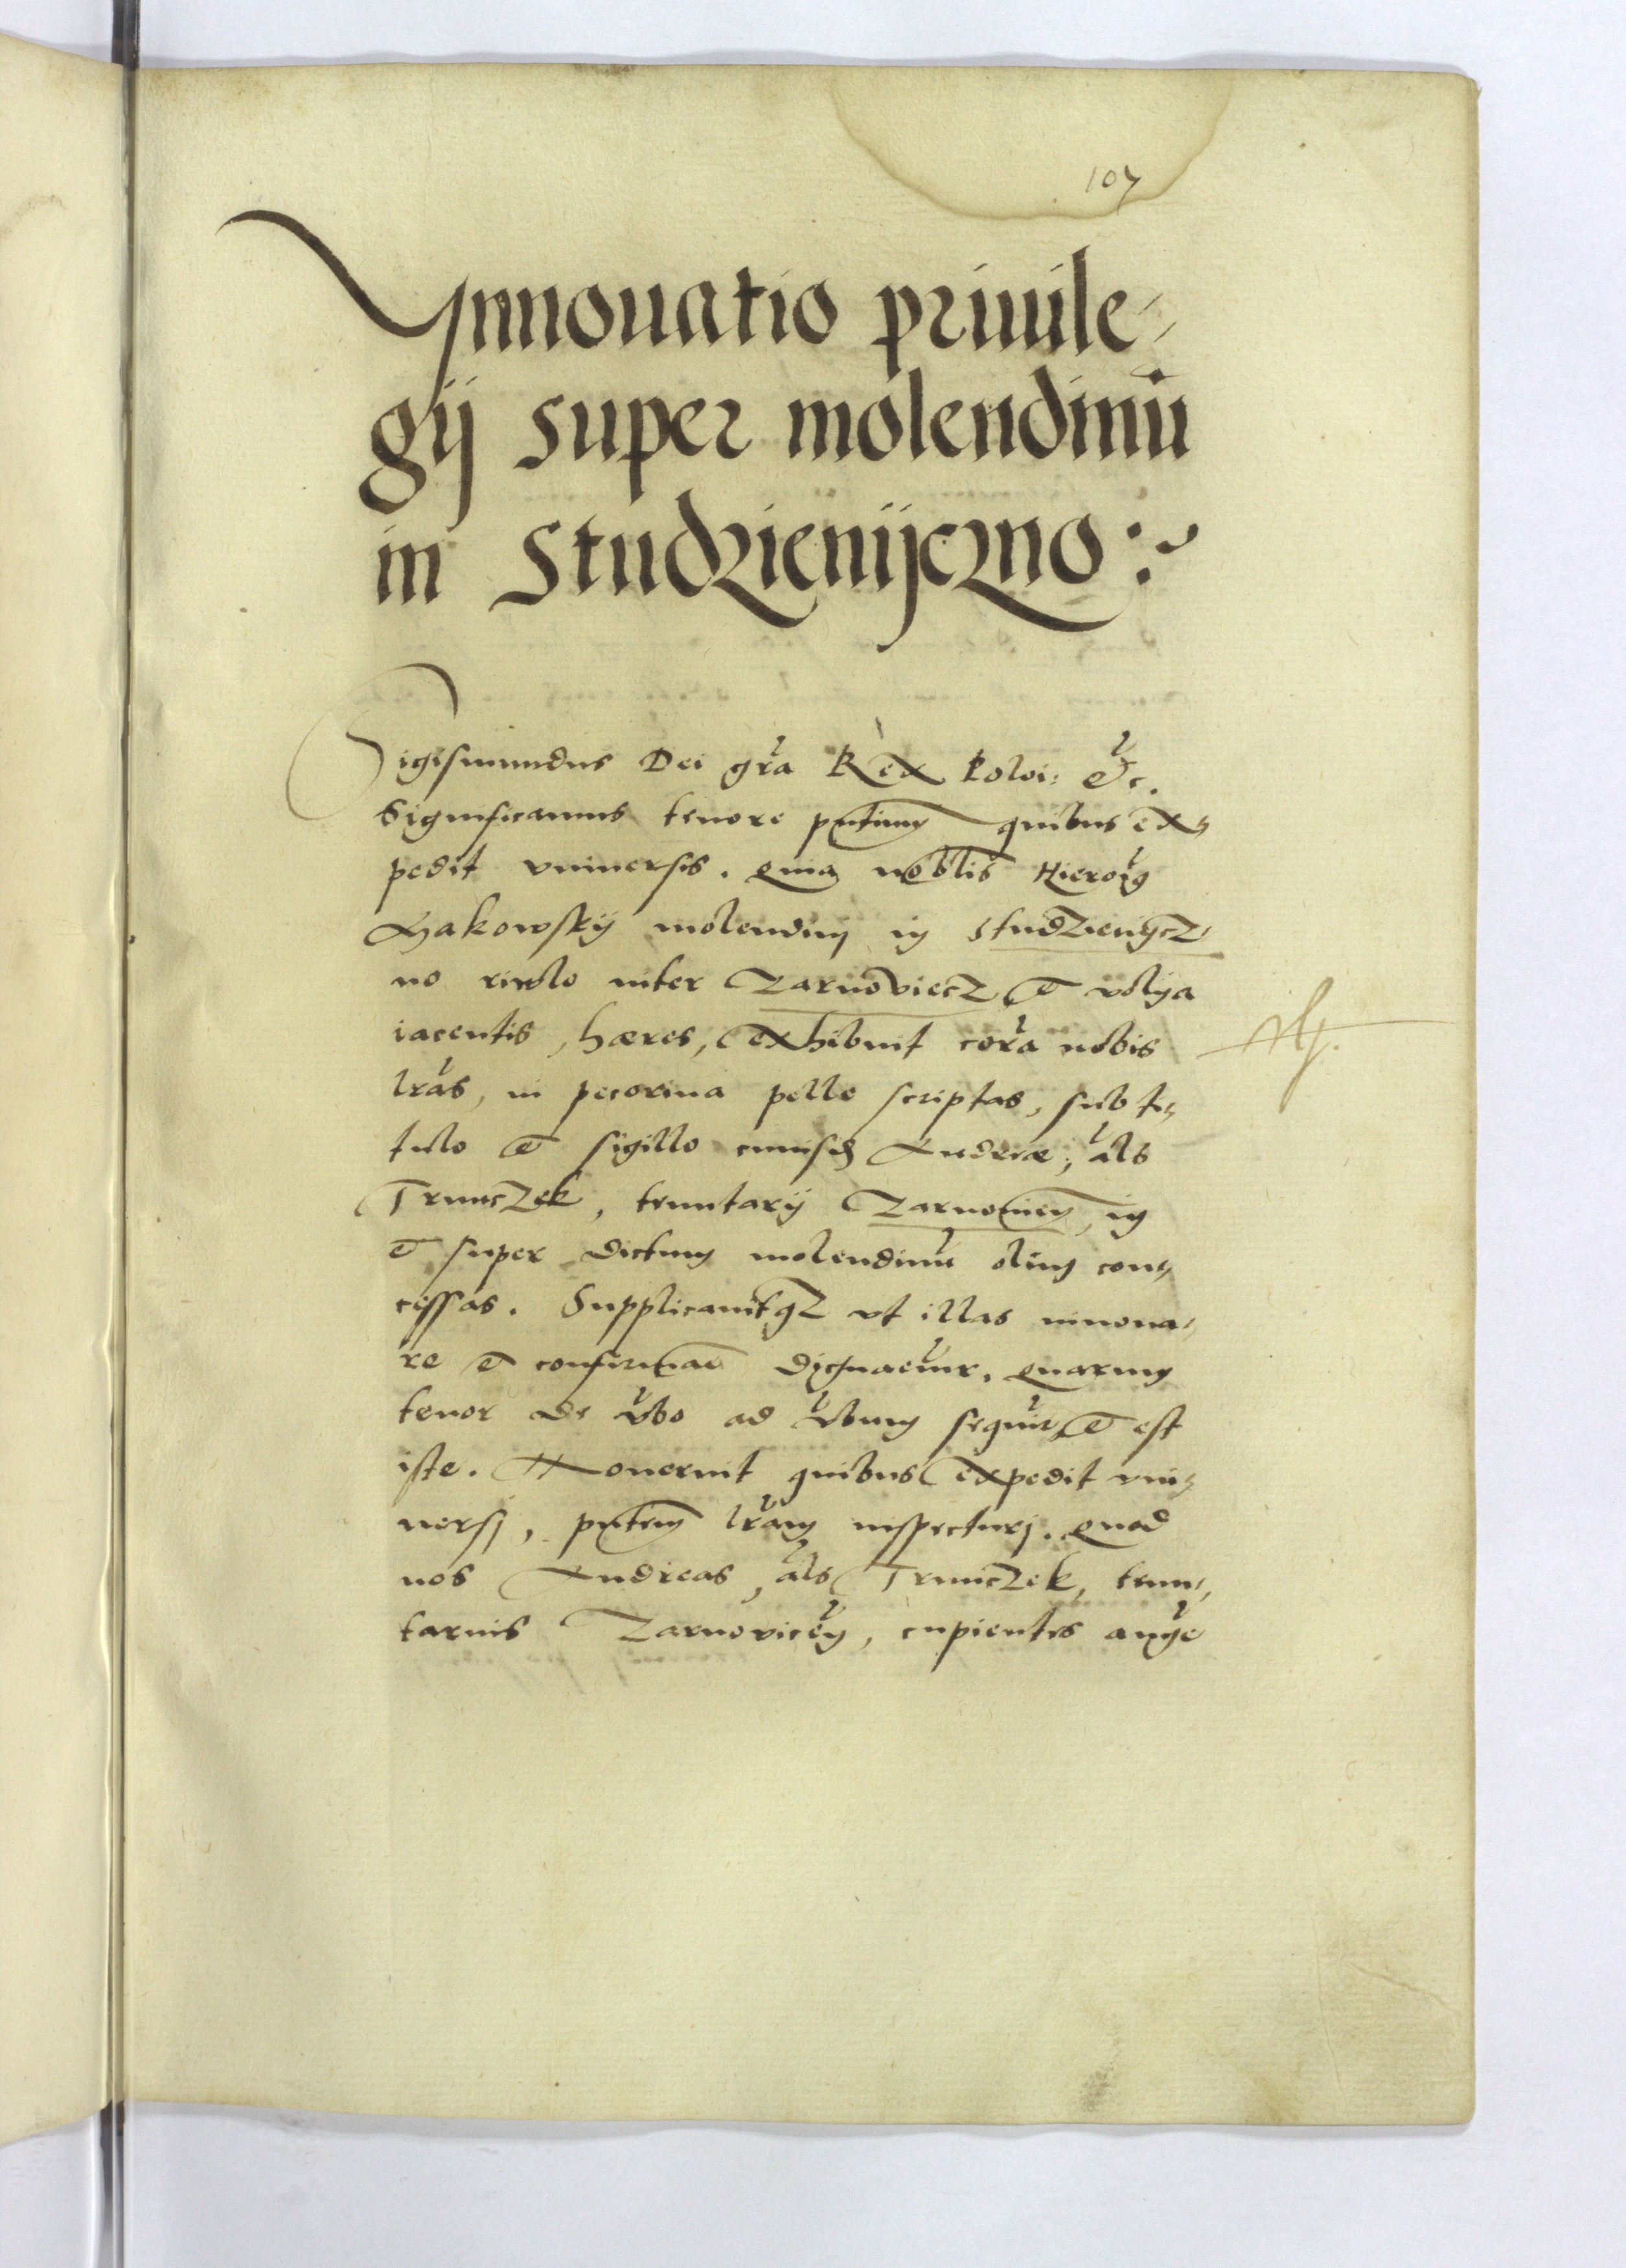 107
Innouatio priuile-
gij super molendinū
in Studzienijczno:
Sigismundus Dei gra Rex Poloi: &c.
Significamus tenore pntium quibus ex-
pedit vniuersis. Quia noblis Hieroig
Żakowskij molendinj in Studzienijcz-
no riuolo inter Czarnoviecz et volija
iacentis, hæres, exhibuit cora nobis
lras, in pecorina pelle scriptas, sub ti-
tulo et sigillo cuiusd Andreæ, als
Trunczek, tenutarij Czarnouien, in
et super dictum molendinū olim con-
cessas. Supplicauitqz vt illas innoua-
re et confirmae dignaemur. Quarum
tenor de vbo ad vbum sequit, et est
iste. Nouerint quibus expedit vni-
uersj, pntem lram inspecturj. Quod
nos Andreas, als Trunczek, tenu-
tarius Czarnovicen, cupientes auge